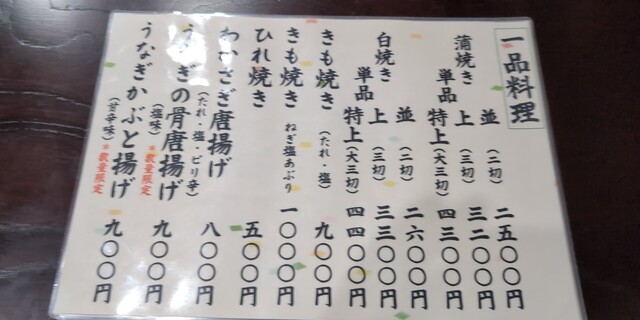 一品料理
蒲焼き
単品
並（二切） 二五〇〇円
上（三切） 三二〇〇円
特上（大三切） 四三〇〇円
白焼き
単品
並（二切） 二六〇〇円
上（三切） 三三〇〇円
特上（大三切） 四四〇〇円
きも焼き（たれ・塩） 九〇〇円
きも焼き ねぎ塩あぶり 一〇〇〇円
ひれ焼き 五〇〇円
わかさぎ唐揚げ（たれ・塩・ピリ辛） 八〇〇円
うなぎの骨唐揚げ（塩味）*数量限定 九〇〇円
うなぎかぶと揚げ（甘辛味）*数量限定 九〇〇円